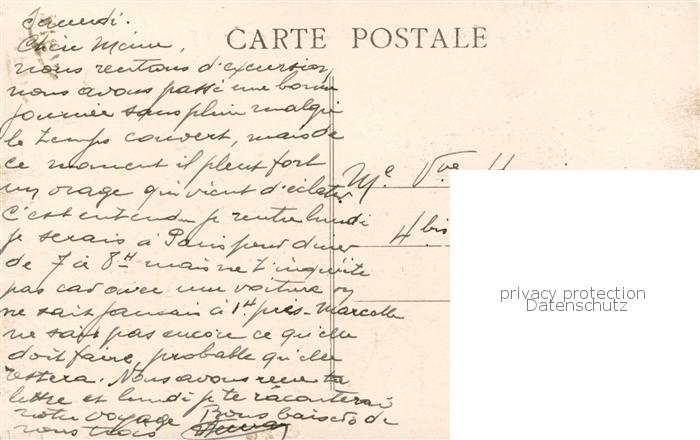 Samedi.
Chère Mème,
CARTE POSTALE
nous rentrons d'excursion,
nous avons passé une bonne
journée sans pluie malgré
le temps couvert, mais de
ce moment il pleut fort
un orage qui vient d'éclater
C'est entendu je rentre lundi
je serais à Paris pour diner
de 7 à 8H mais ne t'inquiète
pas car avec une voiture on
ne sait jamais à 1H près. Marcelle
ne sait pas encore ce qu'elle
doit faire, probable qu'elle
restera. Nous avons reçu ta
lettre et lundi je te raconterai
notre voyage Bons baisers de
nous trois
Me Vve
4 bis
privacy protection
Datenschutz